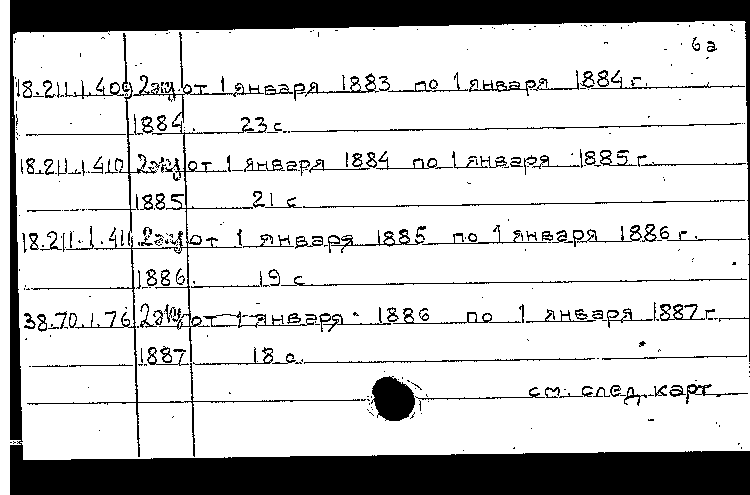 6а
18.211.1.409 2экз от 1 января 1883 по 1 января 1884 г.
1884. 23 с
18.211.1.410 2экз от 1 января 1884 по 1 января 1885 г.
1885. 21 с
18.211.1.411 2экз от 1 января 1885 по 1 января 1886 г.
1886. 19 с
38.70.1.76 2экз от 1 января 1886 по 1 января 1887 г.
1887 18 с.
см. след. карт.